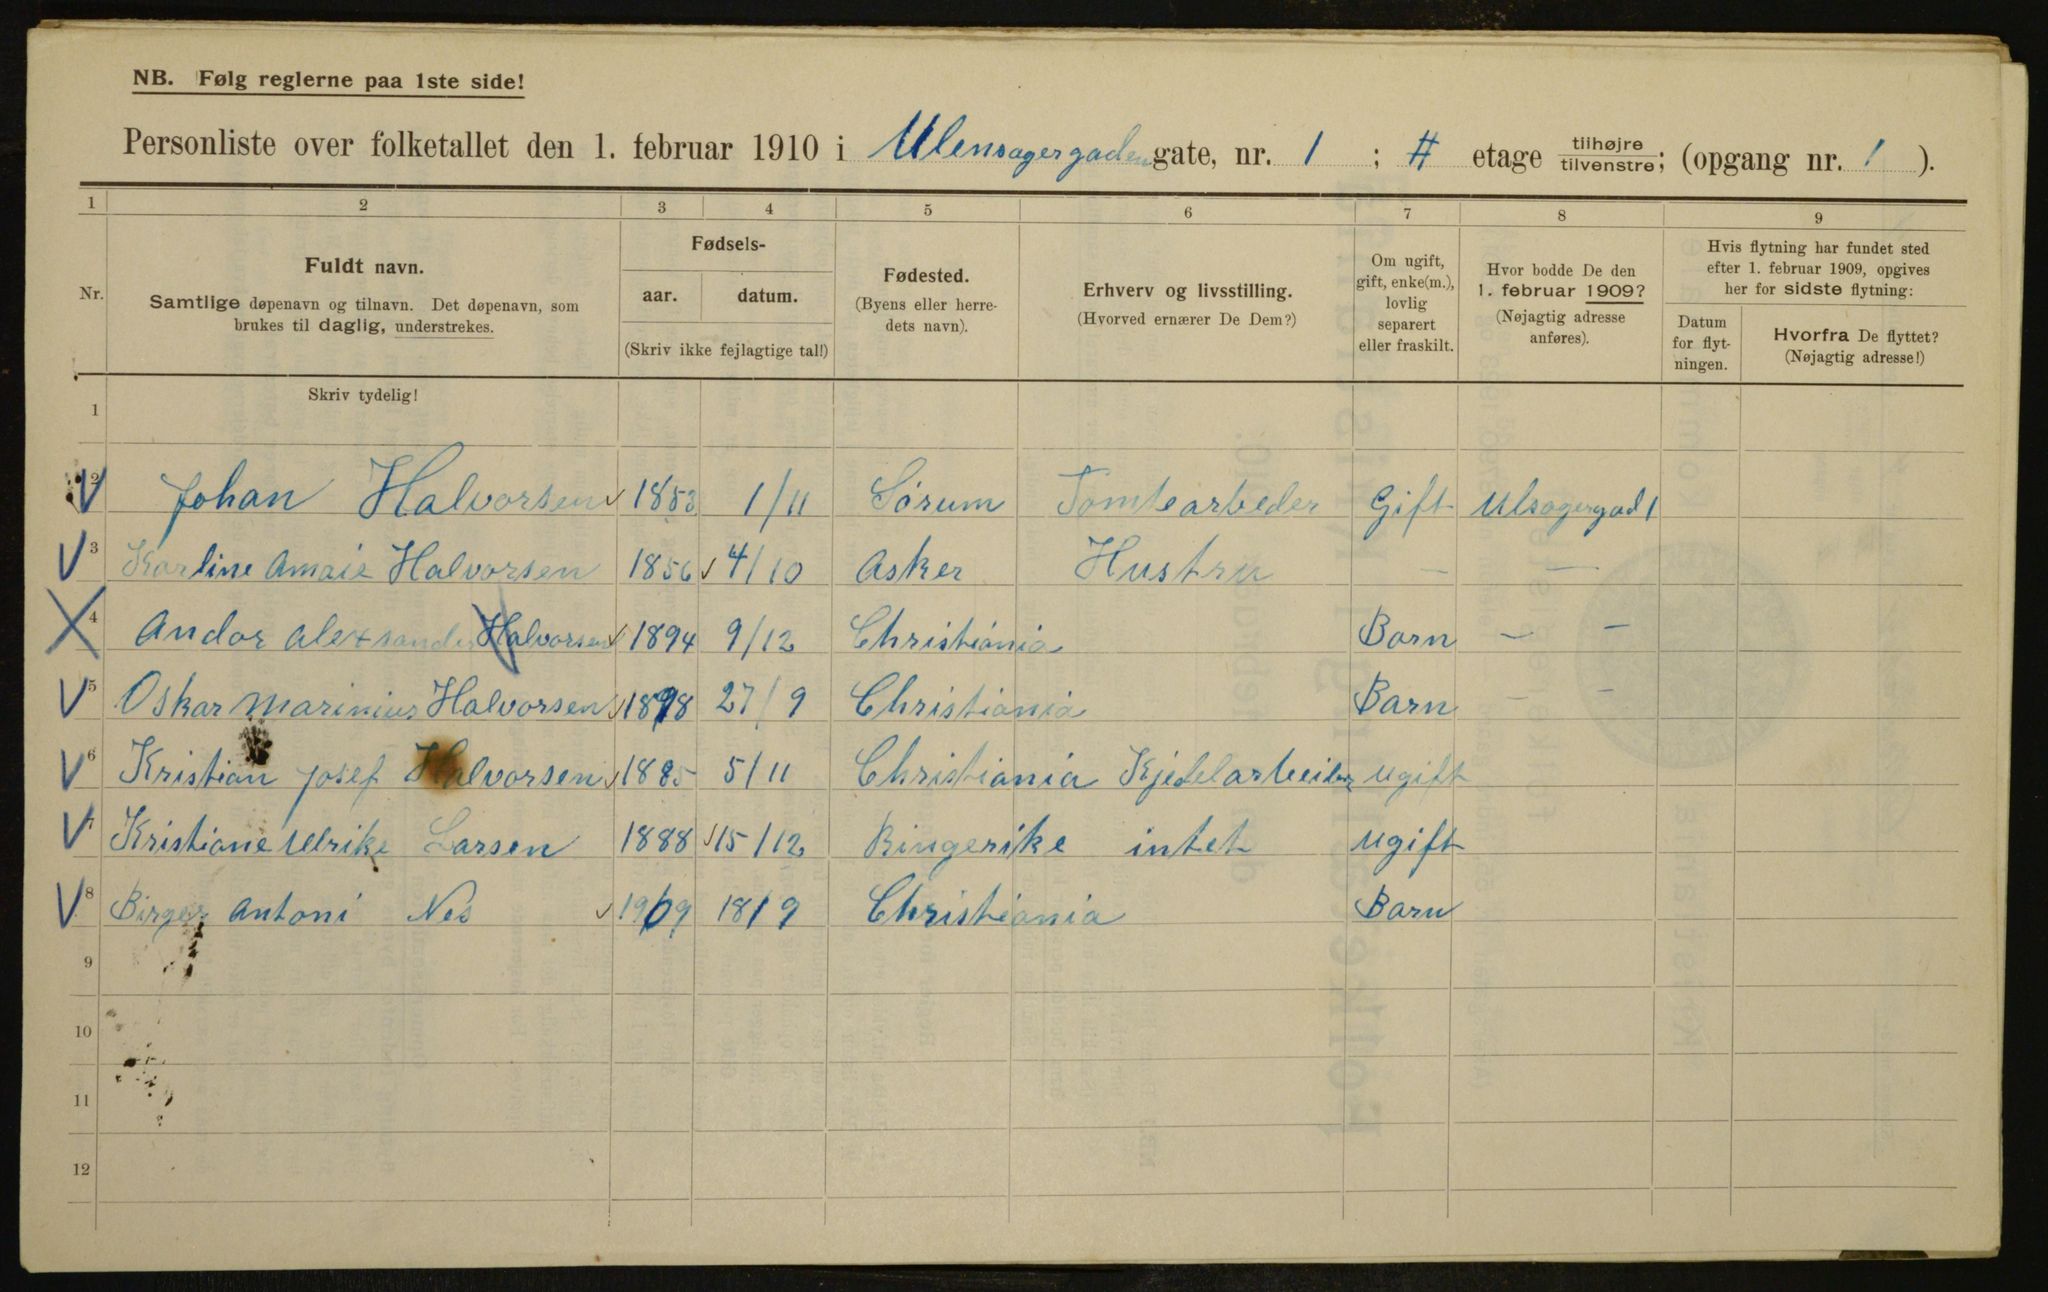 NB. Følg reglerne paa 1ste side!
Personliste over folketallet den 1. februar 1910 i Ulensagergaden gate, nr. 1 ; # etage tilhøjre tilvenstre; (opgang nr. 1 ).
1 2 3 4 5 6 7 8 9
Nr.
Fuldt navn.
Samtlige døpenavn og tilnavn. Det døpenavn, som
brukes til daglig, understrekes.
Fødsels-
aar. datum.
(Skriv ikke fejlagtige tal!)
Fødested.
(Byens eller herre-
dets navn).
Erhverv og livsstilling.
(Hvorved ernærer De Dem?)
Om ugift,
gift, enke(m.),
lovlig
separert
eller fraskilt.
Hvor bodde De den
1. februar 1909?
(Nøjagtig adresse
anføres).
Hvis flytning har fundet sted
efter 1. februar 1909, opgives
her for sidste flytning:
Datum
for flyt-
ningen.
Hvorfra De flyttet?
(Nøjagtig adresse!)
Skriv tydelig!
1
2 Johan Halvorsen 1853 1/11 Sørum Tomtearbeder Gift Ulsagergad 1
3 Karline Amaie Halvorsen 1856 4/10 Asker Hustru — —
4 Andor Alexsander Halvorsen 1894 9/12 Christiania Barn — —
5 Oskar Marinius Halvorsen 1898 27/9 Christiania Barn — —
6 Kristian Josef Halvorsen 1885 5/11 Christiania Kjedelarbeider ugift
7 Kristiane Ulrike Larsen 1888 15/12 Ringerike intet ugift
8 Birger Antoni Nes 1909 18/9 Christiania Barn
9
10
11
12